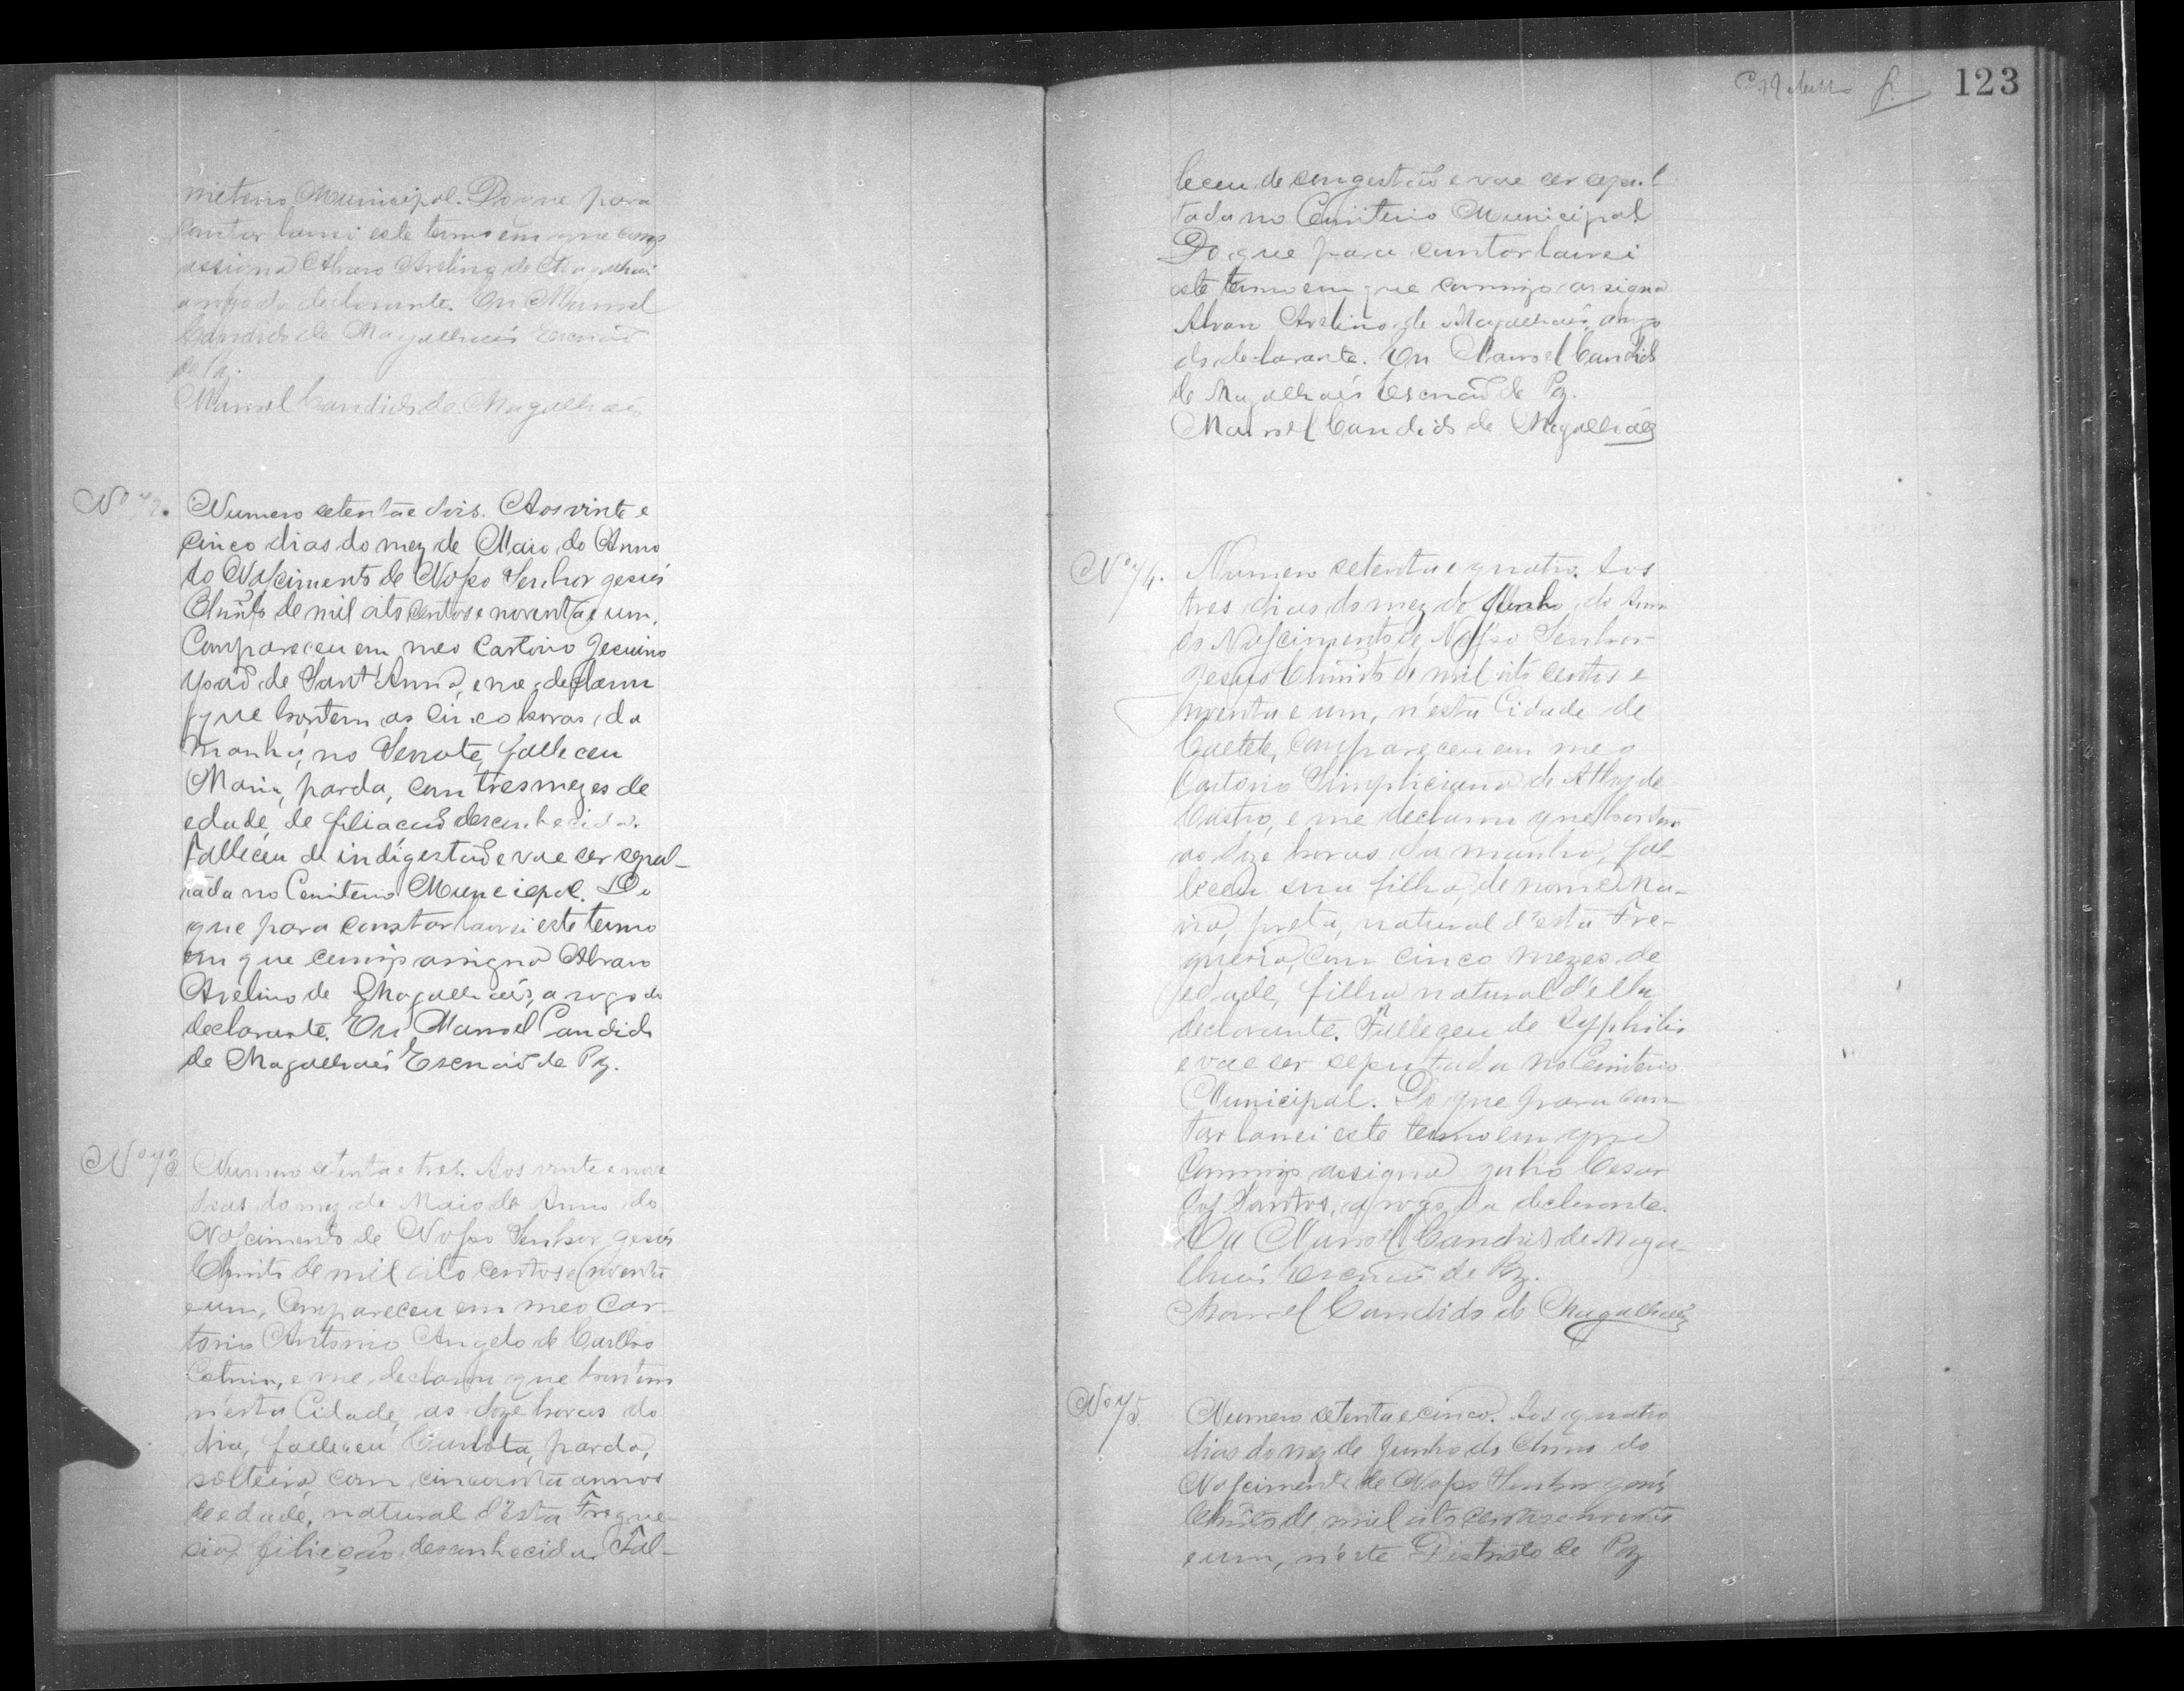 miterio Municipal. Do que para
contar lavrei este termo em que comigo
assigna Alvaro Avelino de Magalhães
a rogo do declarante. Eu Manoel
Candido de Magalhaes Escrivaõ
de Paz.
Manoel Candido de Magalhaẽs
Nº 72.
Numero setenta e dois. Aos vinte e
cinco dias do mez de Maio do Anno
do Nascimento de Nosso Senhor Jesus
Christo de mil oito centos e noventa e um,
Compareceu em meo Cartorio Jesuino
de Sant'Anna, e me declarou
que hontem as cinco horas da
manhã, no Serrote, falleceu
Maria, parda, com tres mezes de
edade, de filiacaõ desconhecida.
Falleceu de indigestaõ e vae ser sepul-
tada no Cemiterio Municipal. Do
que para constar lavrei este termo
em que comigo assigna Alvaro
Avelino de Magalhaẽs, a rogo do
declarante. Eu Manoel Candido
de Magalhaẽs Escrivaõ de Paz.
Nº 73
Numero setenta e tres. Aos vinte e nove
dias do mez de Maio do Anno do
Nascimento de Nosso Senhor Jesus
Christo de mil oito centos e noventa
e um, Compareceu em meo Car-
torio Antonio Angelo de
Cotrim, e me declarou que hontem
n'esta Cidade, as doze horas do
dia, falleceu Carlota, parda,
solteira, com cincoenta annos
de edade, natural d'esta Fregue-
sia, filiação desconhecida. Fal-
123
leceu de congestaõ e vae ser sepul
tada no Cemiterio Municipal
Do que para contar lavrei
este termo em que commigo assigna
Alvaro Avelino de Magalhaẽs, a rogo
do declarante. Eu Manoel Candido
de Magalhaẽs Escrivaõ de Paz.
Manoel Candido de Magalhaẽs
Nº 74.
Numero setenta e quatro. Aos
tres dias do mez de Junho do Anno
do Nascimento de Nosso Senhor
Jesus Christo de mil oito centos e
noventa e um, n'esta Cidade de
Caetete, compareceu em meo
Cartorio Simpliciana de Athayde
Castro, e me declarou que hontem
as doze horas da manhã, fal-
leceu sua filha, de nome Ma-
ria, preta, natural d'esta Fre-
guesia, com cinco mezes de
edade, filha natural d'ella
declarante. Falleceu de syphilis
e vae ser sepultada no Cemiterio
Municipal. Do que para con-
tar lavrei este termo em que
Commigo assigna Julio Cesar
dos Santos, a rogo da declarante.
Eu Manoel Candido de Maga-
lhaẽs Escrivaõ de Paz.
Manoel Candido de Magalhaẽs
Nº 75.
Numero setenta e cinco. Aos quatro
dias do mez de Junho do Anno do
Nascimento de Nosso Senhor Jesus
Christo de mil oito centos e noventa
e um, n'este Districto de Paz